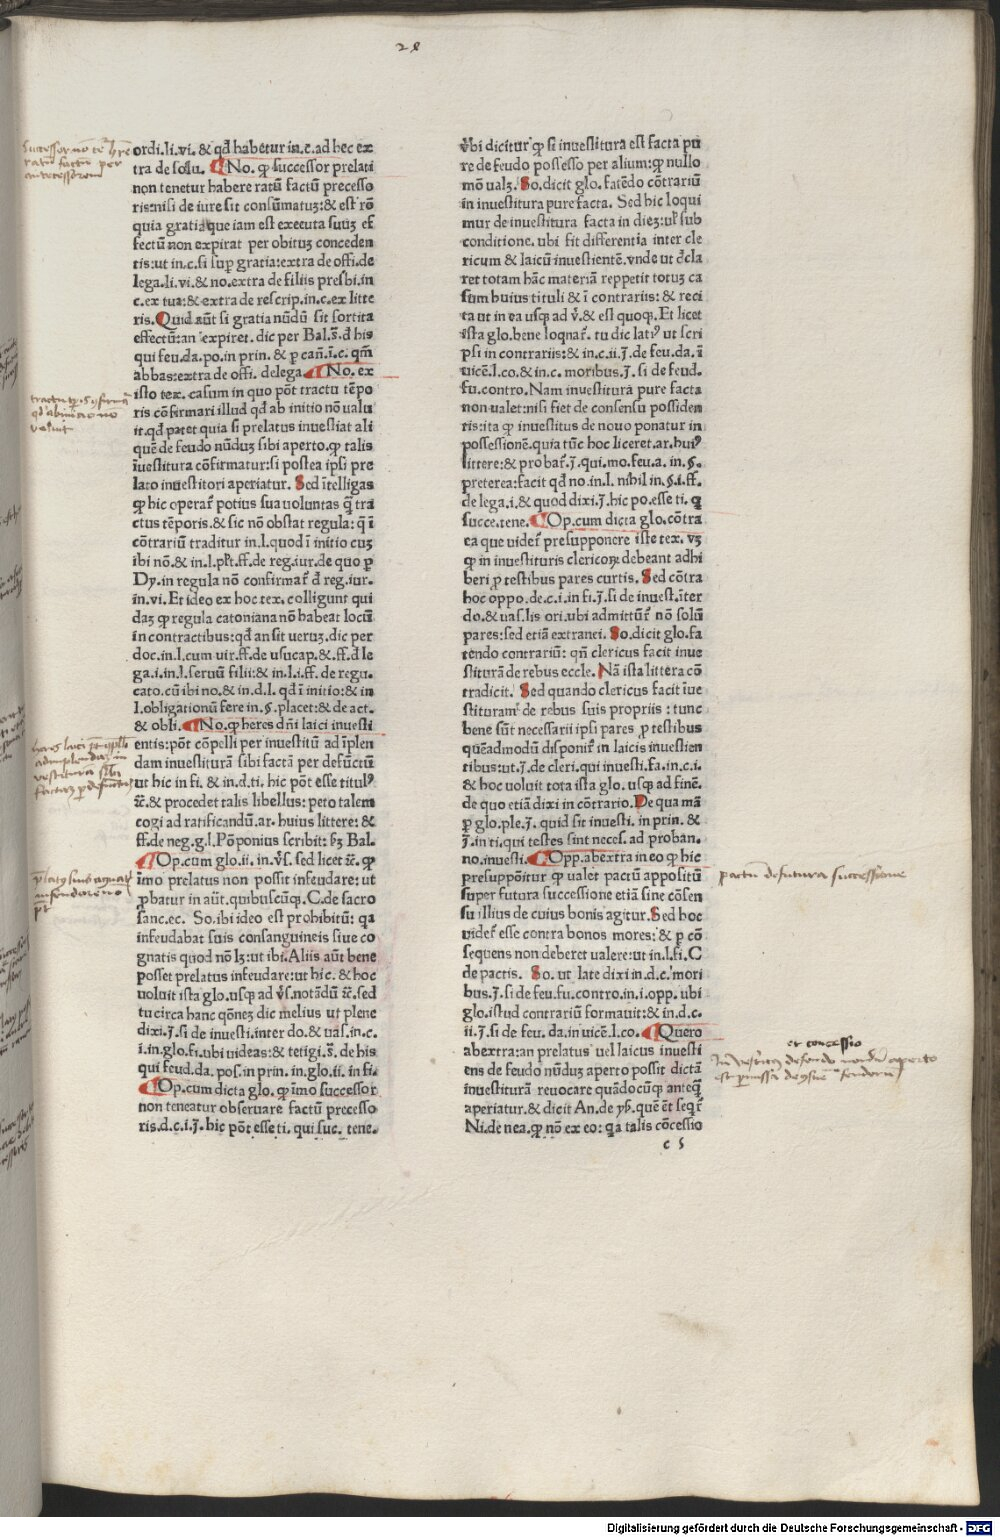 28
ordi.li.vi.& qd̄ habetur in.c.ad hec ex
tra de solu. No. ꝙ successor prelati
non tenetur habere ratū factū precesso
ris:nisi de iure sit consūmatuꝫ:& est rō
quia gratia que iam est executa suuꝫ ef
fectū non expirat per obituꝫ conceden
tis:ut in.c.si suꝑ gratia:extra de offi.de
lega.li.vi.& no.extra de filiis presbi.in
c.ex tua:& extra de rescrip.in.c.ex litte
ris.Quid aūt si gratia nūdū sit sortita
effectū:an expiret.dic per Bal.s̄.d̄ his
qui feu.da.po.in prin.& p can̄.ī.c.qm̄
abbas:extra de offi.delega. No.ex
isto tex.casum in quo pōt tractu tēpo
ris cōfirmari illud qd̄ ab initio nō ualu
it.qd̄ patet quia si prelatus inuestiat ali
quē de feudo nūduꝫ sibi aperto.ꝙ talis
īuestitura cōfirmatur:si postea ipsi pre
lato inuestitori aperiatur. Sed ītelligas
ꝙ hic operat̄ potius sua uoluntas q̄ tra
ctus tēporis.& sic nō obstat regula:q̄ ī
cōtrariū traditur in.l.quod ī initio cuꝫ
ibi nō.& in.l.pl̄t.ff.de reg.iur.de quo ꝑ
Dy.in regula nō confirmat̄ d̄ reg.iur.
in.vi.Et ideo ex hoc tex.colligunt qui
daꝫ ꝙ regula catoniana nō habeat locū
in contractibus:qd̄ an sit ueruꝫ.dic per
doc.in.l.cum vir.ff.de usucap.&.ff.d̄ le
ga.i.in.l.seruū filii:& in.l.i.ff.de regu.
cato.cū ibi no.& in.d.l.qd̄ ī initio:& in
l.obligationū fere in.§.placet:& de act.
& obli. No.ꝙ heres dn̄i laici inuesti
entis:pōt cōpelli per inuestitū ad īplen
dam inuestiturā sibi factā per defūctū
ut hic in fi.& in.d.ti.hic pōt esse titulꝰ
⁊c̄.& procedet talis libellus:peto talem
cogi ad ratificandū.ar.huius littere:&
ff.de neg.g.l.Pōponius scribit:
Op.cum glo.ii.in.v̄s.sed licet ⁊c̄.ꝙ
īmo prelatus non possit infeudare:ut
ꝓbatur in aūt.quibuscūqꝫ.C.de sacro
sanc.ec. So.ibi ideo est prohibitū:qa
infeudabat suis consanguineis siue co
gnatis quod nō lꝫ:ut ibi.Aliis aūt bene
posset prelatus infeudare:ut hic.& hoc
uoluit ista glo.usqꝫ ad v̄s.notādū ⁊c̄.sed
tu circa hanc qōneꝫ dic melius ut plene
dixi.J.si de inuesti.inter do.& uas.in.c.
i.in.glo.fi.ubi uideas:& tetigi.s̄.de his
qui feud.da.pos.in prin.in.glo.ii.in fi.
Op.cum dicta glo.ꝙ īmo successor
non teneatur obseruare factū precesso
ris.d.c.i.J.hic pōt esse ti.qui suc.tene.
v̄bi dicitur ꝙ si inuestitura est facta pu
re de feudo possesso per alium:ꝙ nullo
mō ualꝫ.So.dicit glo.fatēdo cōtrariū
in inuestitura pure facta. Sed hic loqui
mur de inuestitura facta in dieꝫ:ul̄ sub
conditione.ubi fit differentia inter cle
ricum & laicū inuestientē.vnde ut d̄cla
ret totam hāc materiā reppetit totuꝫ ca
sum huius tituli & ī contrariis:& reci
ta ut in ea usqꝫ ad v̄.& est quoqꝫ.Et licet
ista glo.bene loqnat̄.tu dic latiꝰ ut scri
psi in contrariis:& in.c.ii.J.de feu.da.ī
uicē.l.co.& in.c.moribus.J.si de feud.
fu.contro.Nam inuestitura pure facta
non ualet:nisi fiet de consensu possiden
ris:ita ꝙ inuestitus de nouo ponatur in
possessionē.quia tūc hoc liceret.ar.huiꝰ
littere:& probat̄.J.qui.mo.feu.a.in.§.
preterea:facit qd̄ no.in.l.nihil in.§.i.ff.
de lega.i.& quod dixi.J.hic po.esse ti.q̄
succe.tene. Op.cum dicta glo.cōtra
ea que uidet̄ presupponere iste tex.vꝫ
ꝙ in inuestituris clericoꝝ debeant adhi
beri ꝓ testibus pares curtis. Sed cōtra
hoc oppo.de.c.i.in fi.J.si de inuest.īter
do.& uas.lis ori.ubi admittūt̄ nō solū
pares:sed etiā extranei. So.dicit glo.fa
tendo contrariū:qn̄ clericus facit inue
stiturā de rebus eccle.Nā ista littera cō
tradicit. Sed quando clericus facit īue
stituram de rebus suis propriis:tunc
bene sūt necessarii ipsi pares ꝓ testibus
quēadmodū disponit̄ in laicis inuestien
tibus:ut.J.de cleri.qui inuesti.fa.in.c.i.
& hoc uoluit tota ista glo.usqꝫ ad finē.
de quo etiā dixi in cōtrario.De qua mā
ꝑ glo.ple.J.quid sit inuesti.in prin.&
J.in ti.qui testes sint neces.ad proban.
no.inuesti. Opp.abextra in eo ꝙ hic
presuppōitur ꝙ ualet pactū appositū
super futura successione etiā sine cōsen
su illius de cuius bonis agitur.Sed hoc
videt̄ esse contra bonos mores:& ꝑ cō
sequens non deberet ualere:ut in.l.fi.C
de pactis. So.ut late dixi in.d.c.mori
bus.J.si de feu.fu.contro.in.i.opp.ubi
glo.istud contrariū formauit:& in.d.c.
ii.J.si de feu.da.in uicē.l.co. Quero
abextra:an prelatus uel laicus inuesti
ens de feudo nūduꝫ aperto possit dictā
inuestiturā reuocare quādocūqꝫ anteq̄
aperiatur.& dicit An.de yß.quē ēt seqt̄
Ni.de nea.ꝙ nō ex eo:qa talis cōcessio
c 5
pactū de futura successione
et concessio